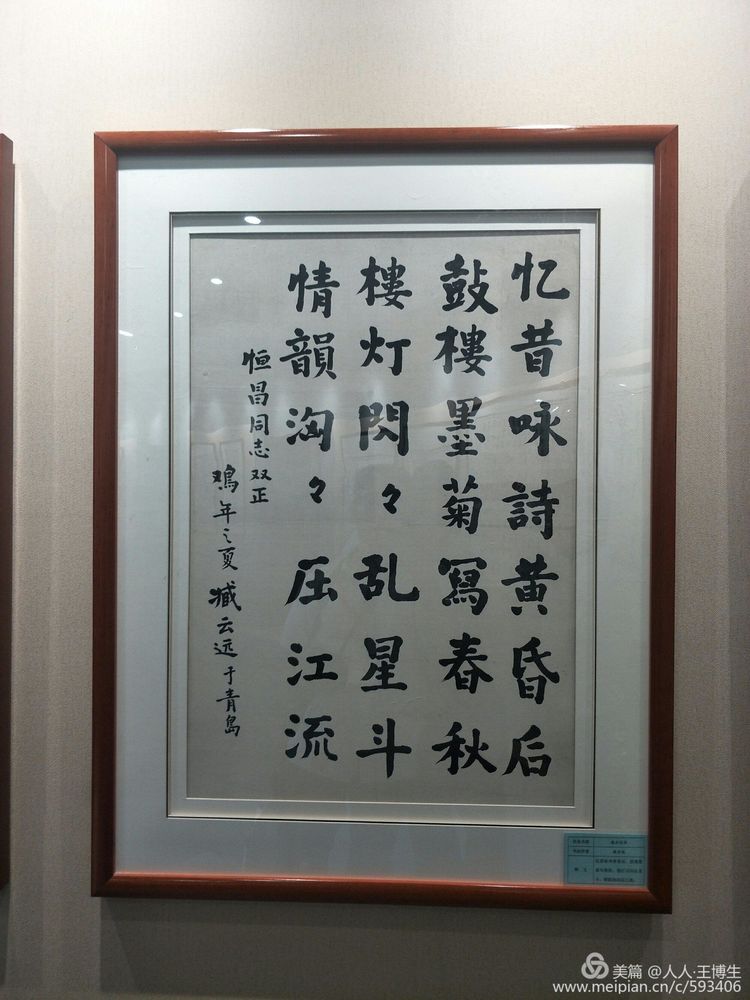 忆昔咏詩黄昏后
鼓樓墨菊寫春秋
樓灯閃々乱星斗
情韻洶々压江流
恒昌同志双正
鸡年之夏 臧云远于青岛
美篇 @人人·王博生
www.meipian.cn/c/593406